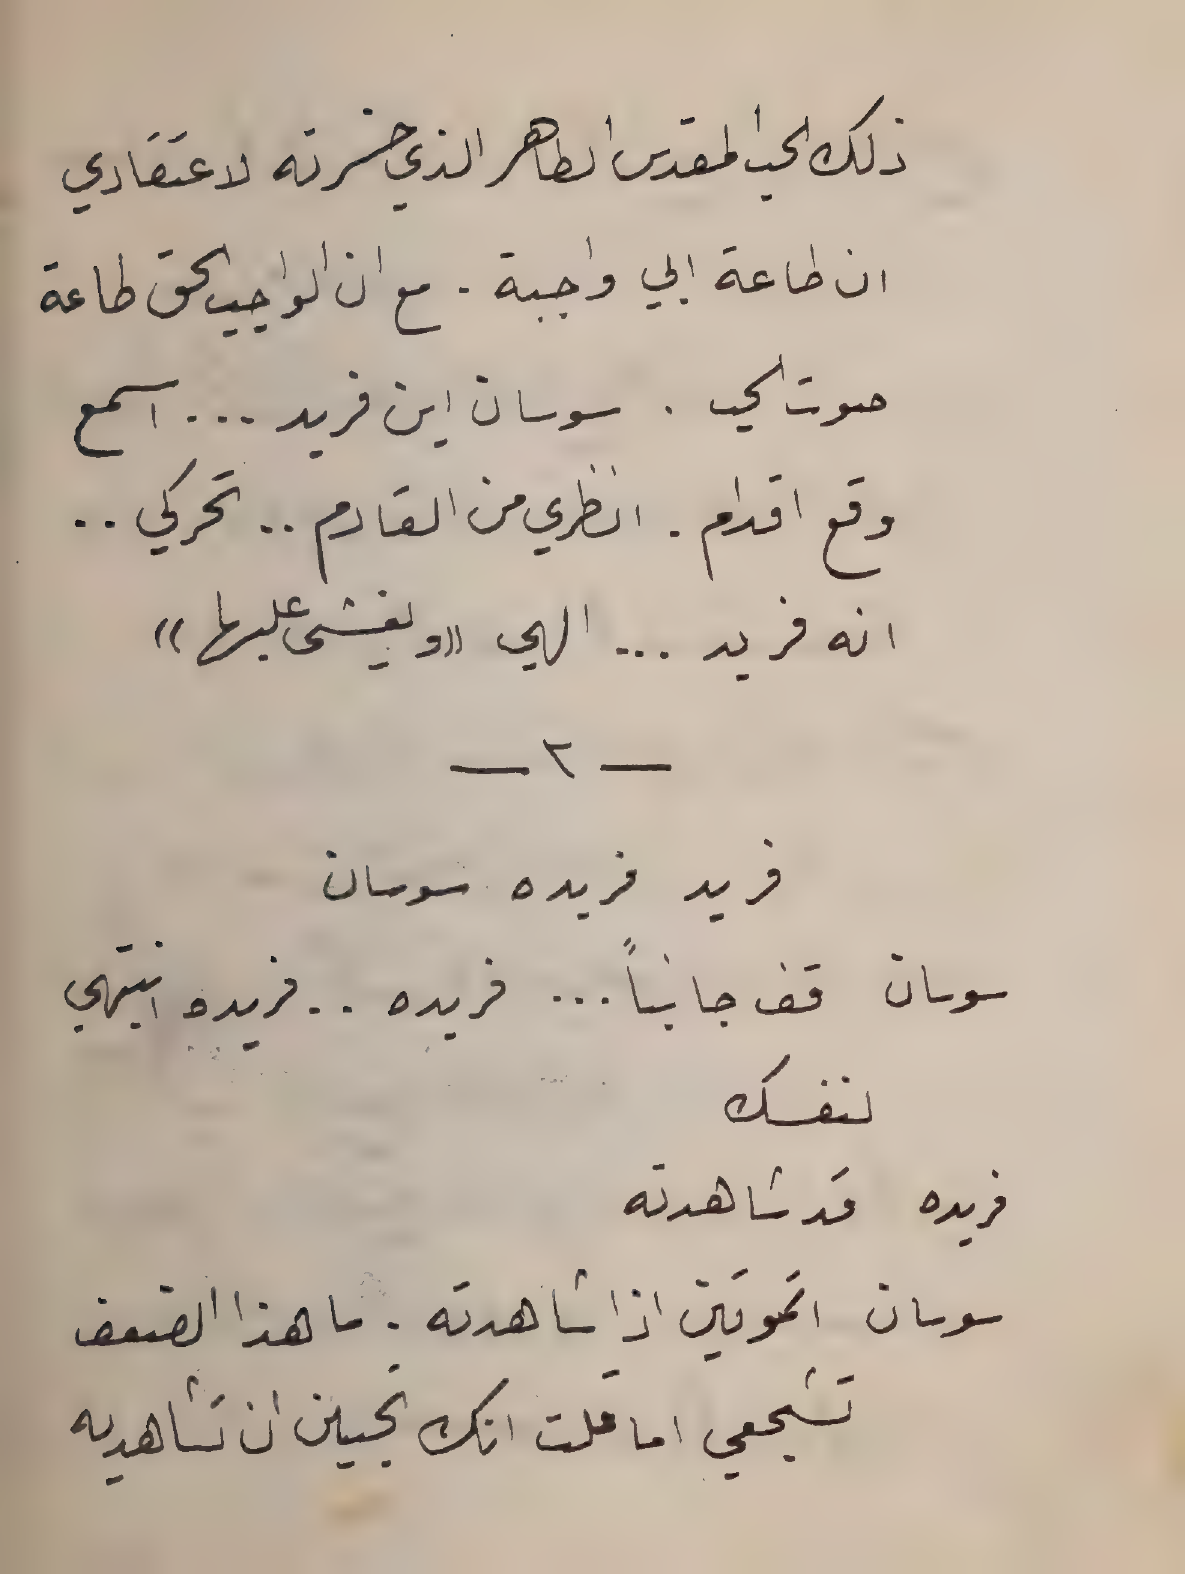 ذلك الحب المقدس الطاهر الذي خسرته لاعتقادي
ان طاعة ابي واجبة . مع ان الواجب الحق طاعة
صوت الحب . سوسان اين فريد ... اسمع
وقع اقدام . انظري من القادم .. تحركي ..
انه فريد ... الهي «ويغشى عليها»
— ٢ —
فريد فريده سوسان
سوسان قف جانباً ... فريده .. فريده انتبهي
لنفسك
فريده قد شاهدته
سوسان اتموتين اذا شاهدته . ما هذا الضعف
تشجعي اما قلت انك تحبين ان تشاهديه